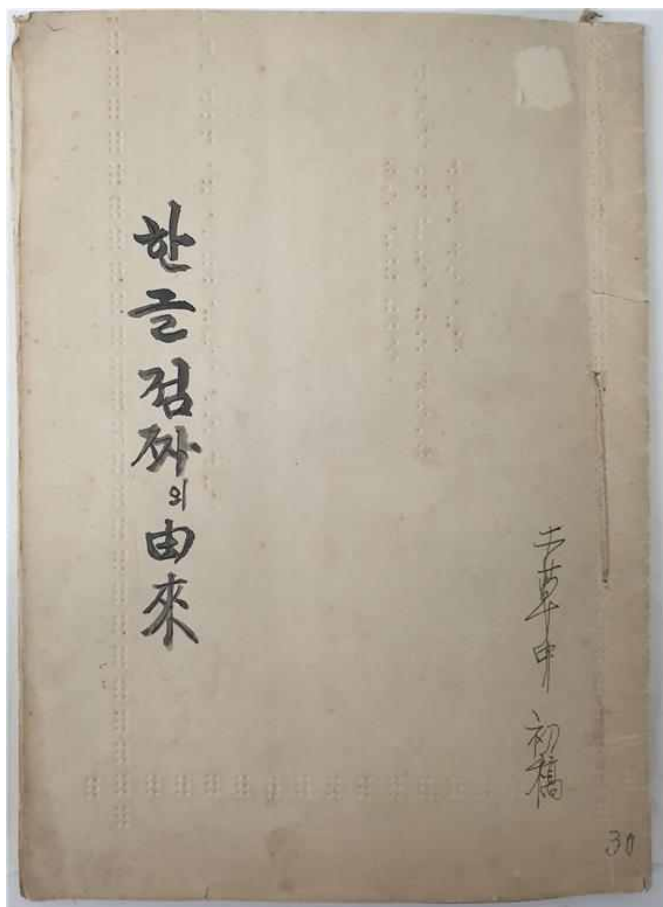 한글점짜의由來
草中 初稿
30